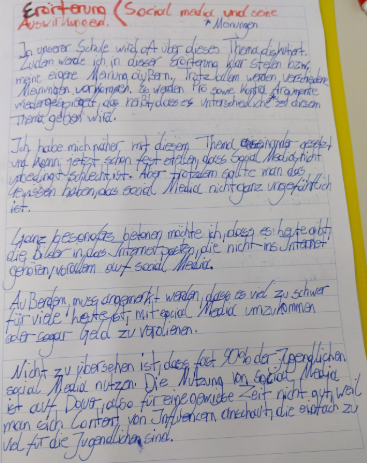 Erörterung (Social media und seine
Auswirkungen.
*Meinungen
In unserer Schule wird oft über dieses Thema diskutiert.
Zudem werde ich in dieser Erörterung klar stellen bzw.
meine eigene Meinung äußern. Trotz allem werden verschiedene
Meinungen vorkommen. Es werden Pro sowie Kontra Argumente
wiedergespiegelt, das heißt, dass es unterschiedliche* zu diesem
Thema geben wird.
Ich habe mich näher mit diesem Thema auseinander gesetzt
und kann jetzt schon fest stellen, dass Social Media nicht
unbedingt schlecht ist. Aber trotzdem sollte man das
Gewissen haben, das social Media nicht ganz ungefährlich
ist.
Ganz besonders betonen möchte ich, dass es heute gibt,
die Bilder in das Internet posten, die nicht ins Internet
gehören, vorallem auf social Media.
Außerdem, muss angemerkt werden, dass es viel zu schwer
für viele heute ist, mit social Media umzukommen
oder sogar Geld zu verdienen.
Nicht zu übersehen ist, dass fast 90% der Jugendlichen
social Media nutzen. Die Nutzung von social Media
ist auf Dauer, also für eine gewisse Zeit nicht gut, weil
man sich Content von Influencern anschaut, die einfach zu
viel für die Jugendlichen sind.